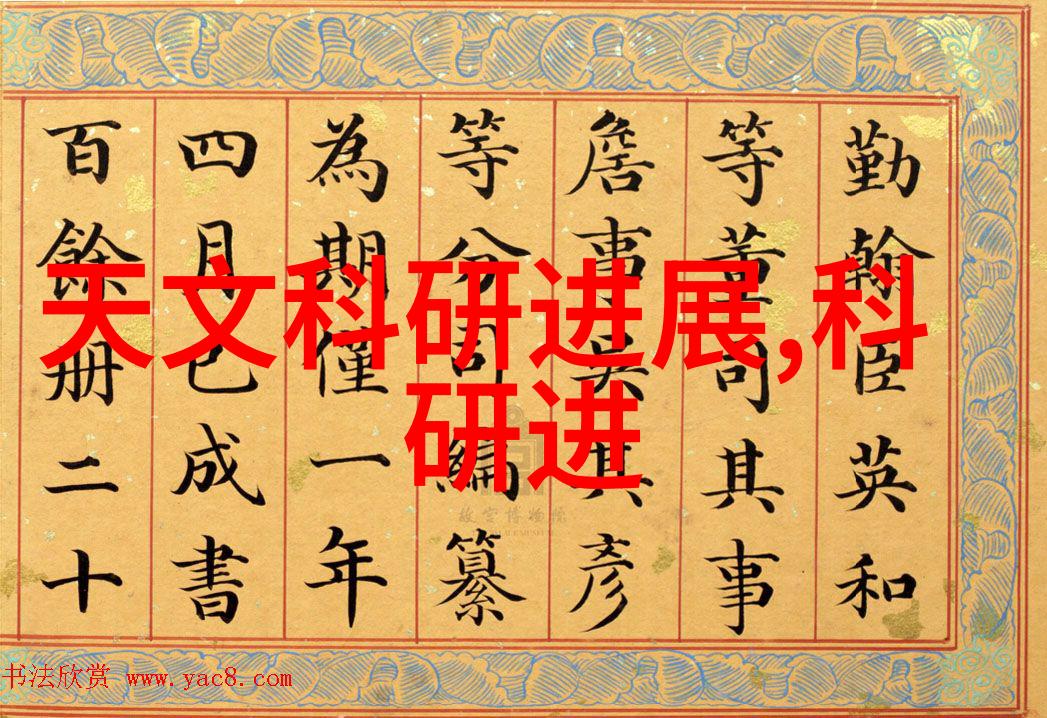 勤翰臣英和
等董司其事
詹事吳其彥
等分司編纂
為期僅一年
四月已成書
百餘册二十
天文科研进展,科
研进
故宫博物院
书法欣赏 www.yac8.com